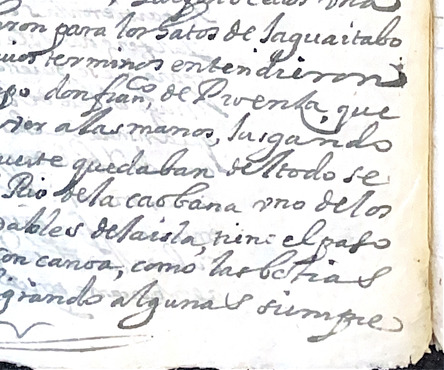 ron para los hatos de Jaguaitabo
terminos entendieron
don fran,co de Puenta, que
a las manos, jusgando
quedaban del todo se
Rio de la caobana vno de los
ables de la isla, tiene el paso
con canoa, como las bestias
grando algunas siempre